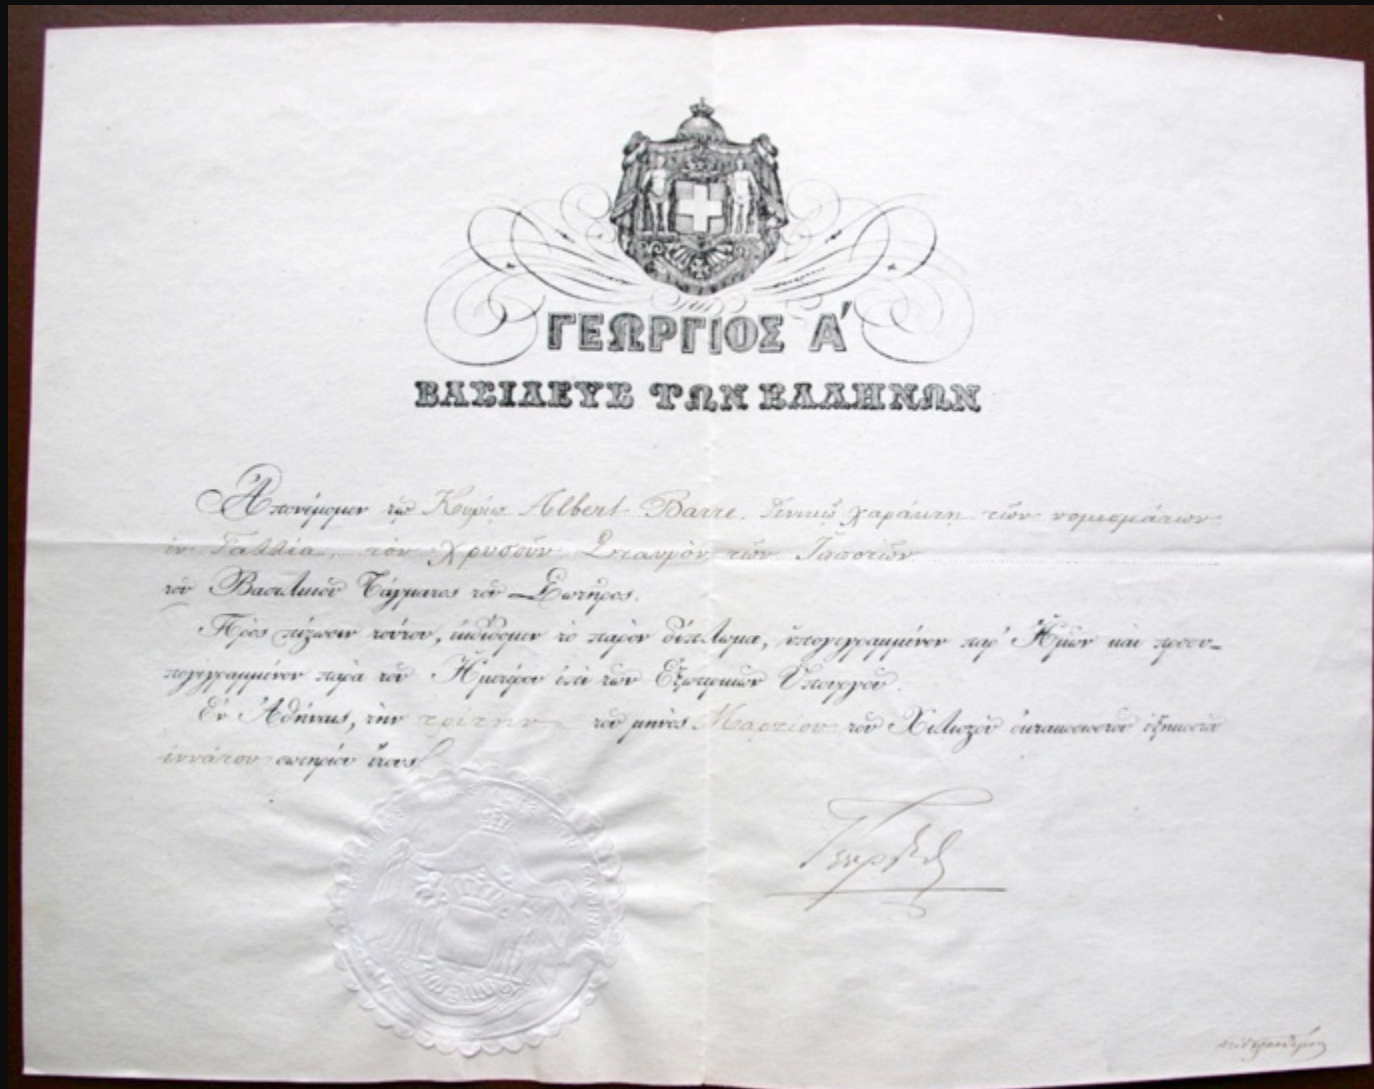 ΓΕΩΡΓΙΟΣ Α'
ΒΑΣΙΛΕΥΣ ΤΩΝ ΕΛΛΗΝΩΝ
Ἀπονέμομεν τῷ Κυρίῳ Albert Barre, Γενικῷ χαράκτῃ τῶν νομισμάτων
ἐν Γαλλίᾳ, τὸν χρυσοῦν Σταυρὸν τῶν Ἱπποτῶν
τοῦ Βασιλικοῦ Τάγματος τοῦ Σωτῆρος.
Πρὸς πίστωσιν τούτου, ἐκδίδομεν τὸ παρὸν δίπλωμα, ὑπογεγραμμένον παρ' Ἡμῶν καὶ προσυ-
πογεγραμμένον παρὰ τοῦ Ἡμετέρου ἐπὶ τῶν Ἐξωτερικῶν Ὑπουργοῦ.
Ἐν Ἀθήναις, τὴν τρίτην τοῦ μηνὸς Μαρτίου τοῦ Χιλιοστοῦ ὀκτακοσιοστοῦ ἑξηκοστοῦ
ἐννάτου σωτηρίου ἔτους.
Γεώργιος